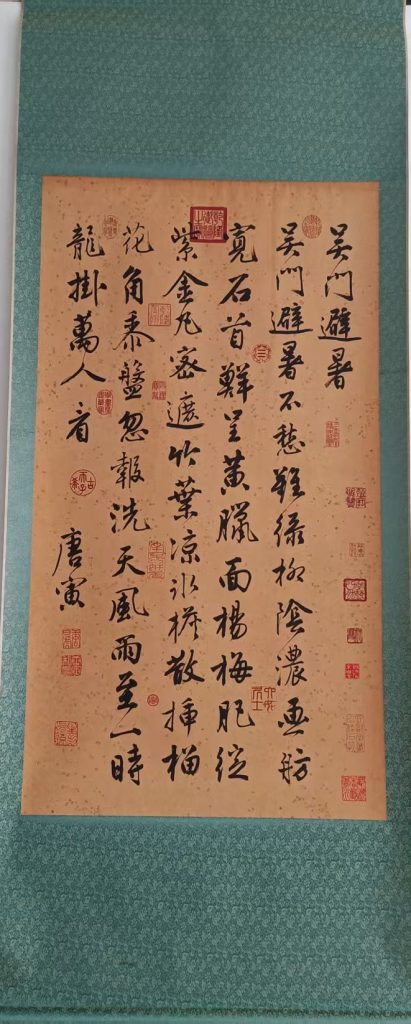 吴門避暑
吴門避暑不愁難緑柳陰濃画舫
寬石首鮮呈黄臘面楊梅肥綻
紫金丸密遮竹葉凉冰散插榴
花角黍盤忽報洗天風雨至一時
龍掛萬人看
唐寅
六如居士